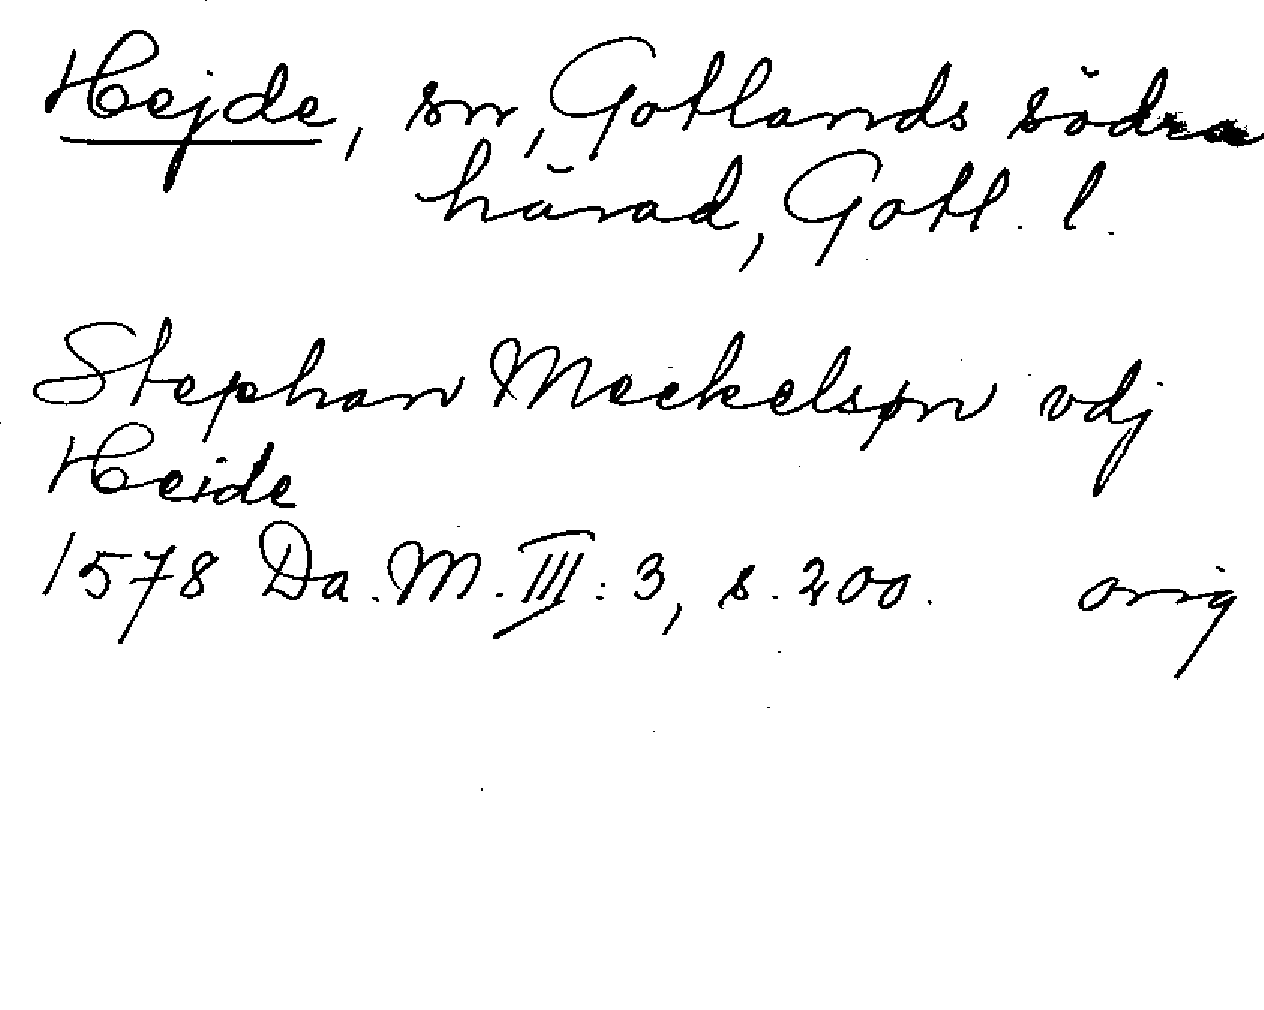 Hejde, sn, Gotlands södra
härad, Gotl. l.
Stephan Meckelsøn vdj
Heide
1578 Da. M. III: 3, s. 200. orig